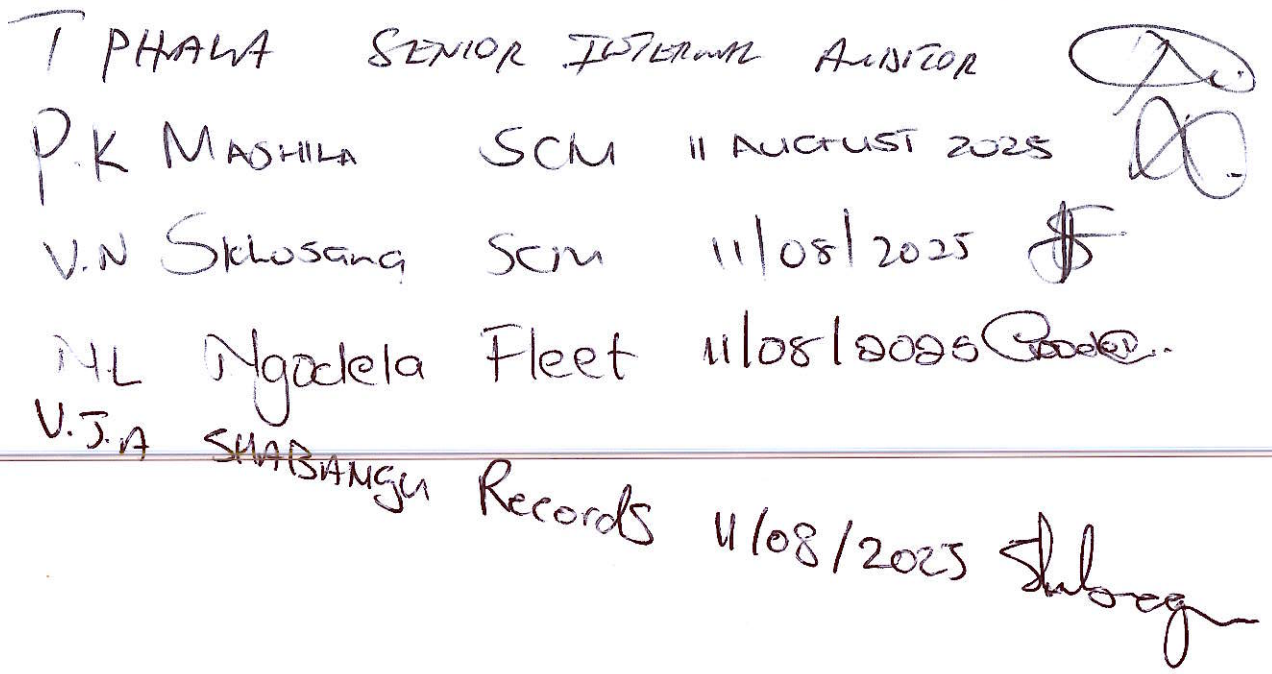 T PHALA SENIOR INTERNAL AUDITOR
P.K MASHILA SCM 11 AUGUST 2025
V.N Skhosana SCM 11/08/2025
NL Ngodela Fleet 11/08/2025
V.J.A SHABANGU Records 11/08/2025